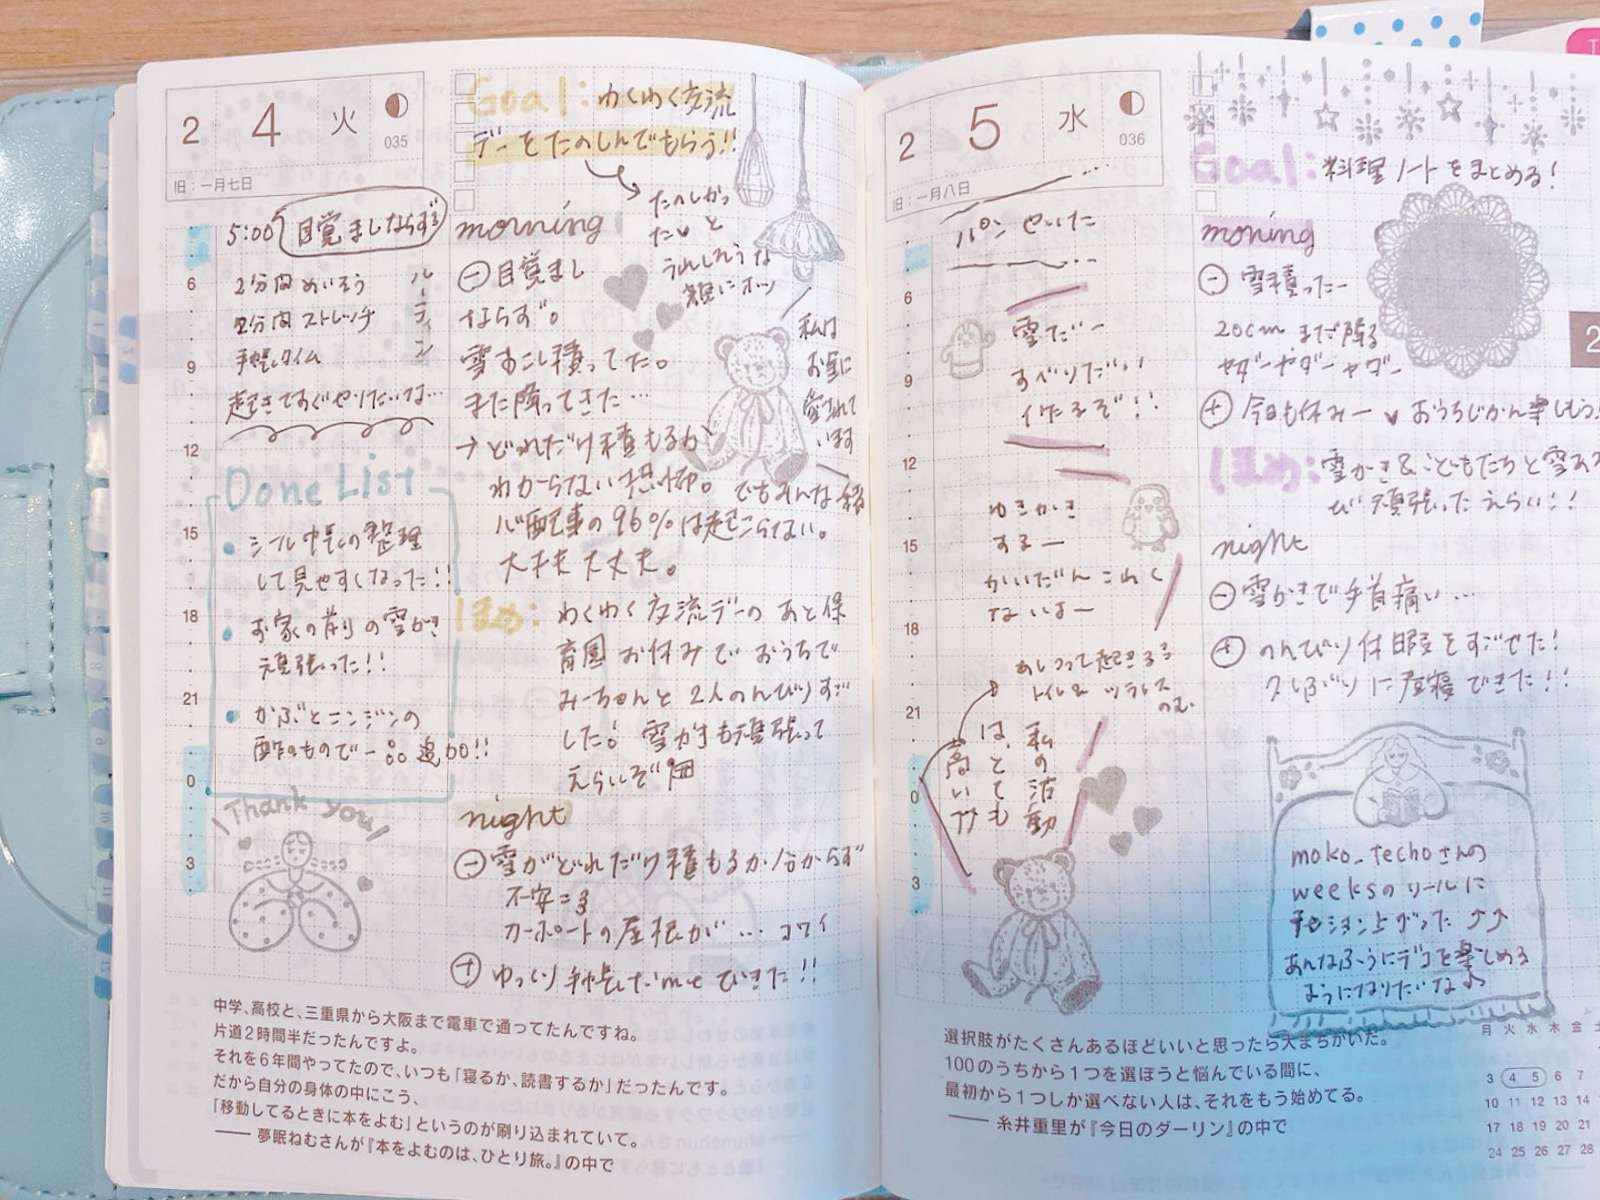 2 4 火
035
旧:一月七日
5:00 目覚ましならず
6
2分間めいそう
2分間ストレッチ
ルーティン
9
手帳タイム
起きてすぐやりたいな…
12
Done List
15
シール帳の整理
して見やすくなった!!
18
お家の前の雪かき
頑張った!!
21
かぶとニンジンの
酢のもので一品追加!!
0
Thank you
3
Goal: わくわく交流
デーをたのしんでもらう!!
たのしかっ
たよと
うれしそうな
morning
⊖目覚まし
ならず。
雪すこし積ってた。
また降ってきた…
→どれだけ積もるか
わからない恐怖。でもそんな
心配事の96%は起こらない。
大丈夫大丈夫。
私は
お空に
愛されて
います
ほめ:
わくわく交流デーのあと保
育園お休みでおうちで
みーちゃんと2人のんびりすご
した! 雪かきも頑張って
えらいぞ
night
⊖雪がどれだけ積もるか分からず
不安=3
カーポートの屋根が…コワイ
⊕ゆっくり手帳じかんできた!!
中学、高校と、三重県から大阪まで電車で通ってたんですね。
片道2時間半だったんですよ。
それを6年間やってたので、いつも「寝るか、読書するか」だったんです。
だから自分の身体の中にこう、
「移動してるときに本をよむ」というのが刷り込まれていて。
── 夢眠ねむさんが『本をよむのは、ひとり旅。』の中で
2 5 水
036
旧:一月八日
パンやいた
6
雪だー
9
すべりだい
作るぞ!!
12
ゆきかき
15
するー
かいだんこわく
ないよー
18
あしつって起きる
トイレ& ツラレス
のむ
21
私の活動
は、とても
高い
0
3
Goal: 料理ノートをまとめる!
moning
⊖雪積ったー
20cm まだ降る
ヤダーヤダーヤダー
⊕今日も休みー♥おうちじかん楽しもう!
ほめ:雪かき&こどもたちと雪あそ
び頑張ったえらい!!
night
⊖雪かきで手首痛い…
⊕のんびり休暇をすごせた!
久しぶりに昼寝できた!!
moko_techoさんの
weeksのリールに
テンション上がった⤴⤴
あんなふうにデコを楽しめる
ようになりたいな♪
選択肢がたくさんあるほどいいと思ったら大まちがいだ。
100のうちから1つを選ぼうと悩んでいる間に、
最初から1つしか選べない人は、それをもう始めてる。
── 糸井重里が『今日のダーリン』の中で
月 火 水 木 金
3 4 5 6 7
10 11 12 13 14
17 18 19 20 21
24 25 26 27 28
2